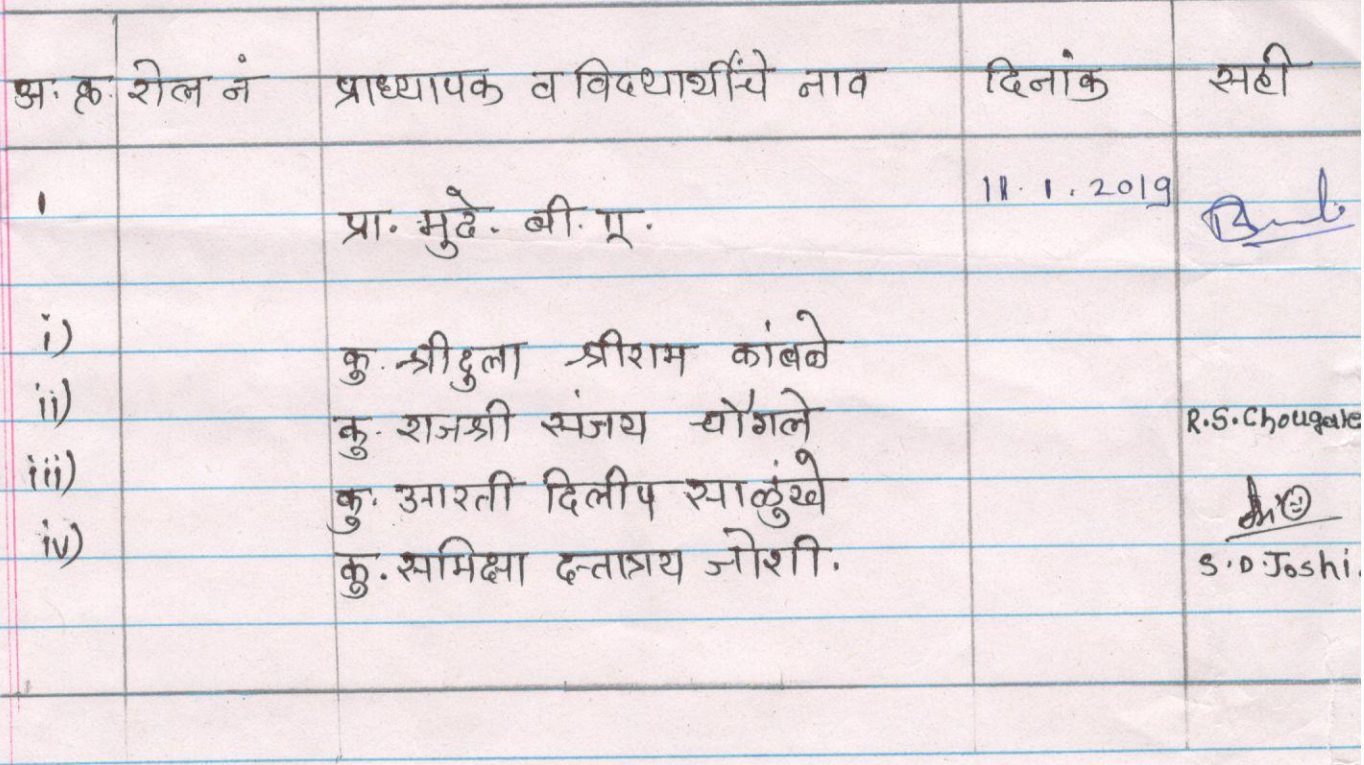 अ. क्र. रोल नं प्राध्यापक व विद्यार्थींचे नाव दिनांक सही
१ प्रा. मुदे. बी. ए. 11.1.2019
i) कु. श्रीदुला श्रीराम कांबळे
ii) कु. राजश्री संजय चौगले R.S.Chougale
iii) कु. आरती दिलीप साळुंखे
iv) कु. समिक्षा दत्तात्रय जोशी. S.D.Joshi.